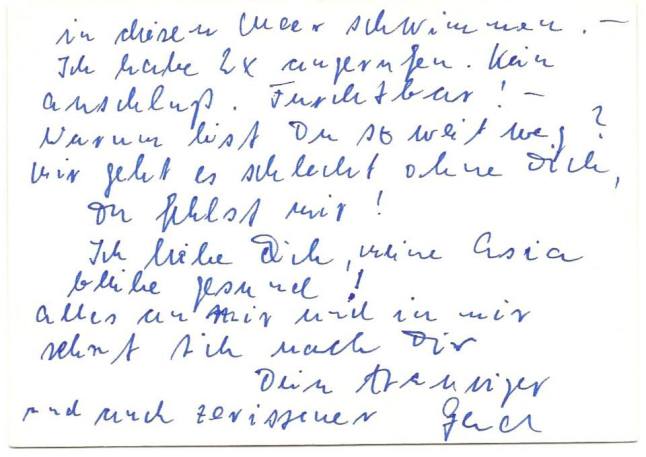 in diesem Meer schwimmen. –
Ich habe 2x angerufen. Kein
Anschluß. Furchtbar! –
Warum bist Du so weit weg?
Mir geht es schlecht ohne Dich,
Du fehlst mir!
Ich liebe Dich, meine Asia
bleibe gesund!
Alles an mir und in mir
sehnt sich nach Dir
Dein trauriger
und auch zerissener